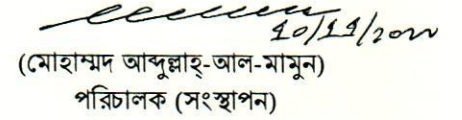 ১০/১১/২০২২
(মোহাম্মদ আব্দুল্লাহ্-আল-মামুন)
পরিচালক (সংস্থাপন)